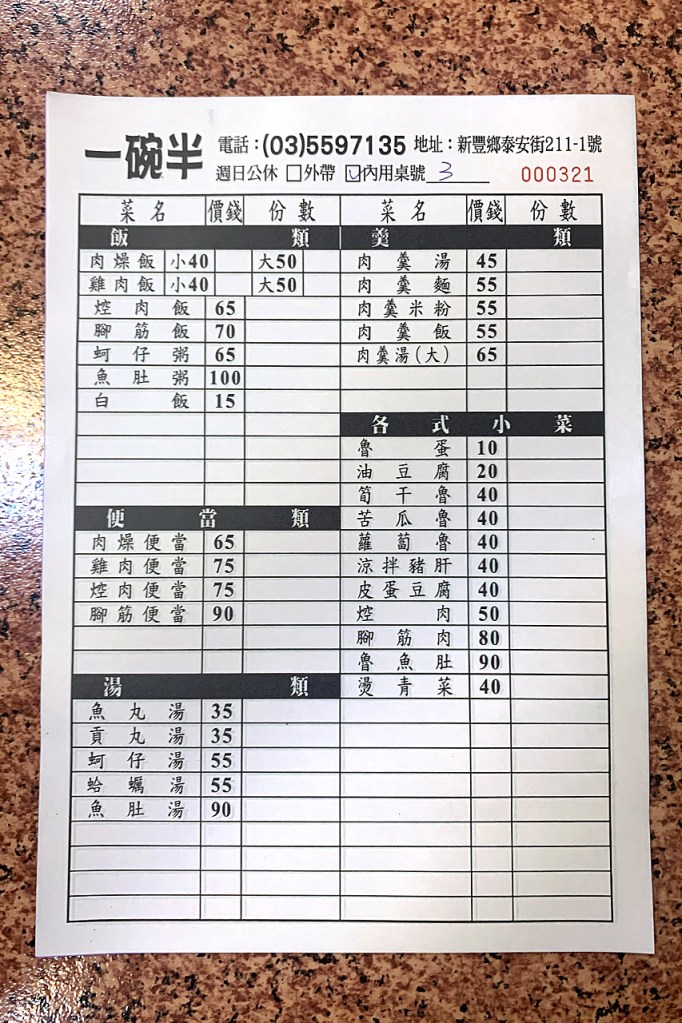 一碗半 電話：(03)5597135 地址：新豐鄉泰安街211-1號
週日公休 □外帶 ☑內用桌號 3 000321
菜名 價錢 份數 菜名 價錢 份數
飯類 羹類
肉燥飯 小40 大50 肉羹湯 45
雞肉飯 小40 大50 肉羹麵 55
焢肉飯 65 肉羹米粉 55
腳筋飯 70 肉羹飯 55
蚵仔粥 65 肉羹湯(大) 65
魚肚粥 100
白飯 15
各式小菜
魯蛋 10
油豆腐 20
筍干魯 40
便當類 苦瓜魯 40
肉燥便當 65 蘿蔔魯 40
雞肉便當 75 涼拌豬肝 40
焢肉便當 75 皮蛋豆腐 40
腳筋便當 90 焢肉 50
腳筋肉 80
魯魚肚 90
湯類 燙青菜 40
魚丸湯 35
貢丸湯 35
蚵仔湯 55
蛤蠣湯 55
魚肚湯 90